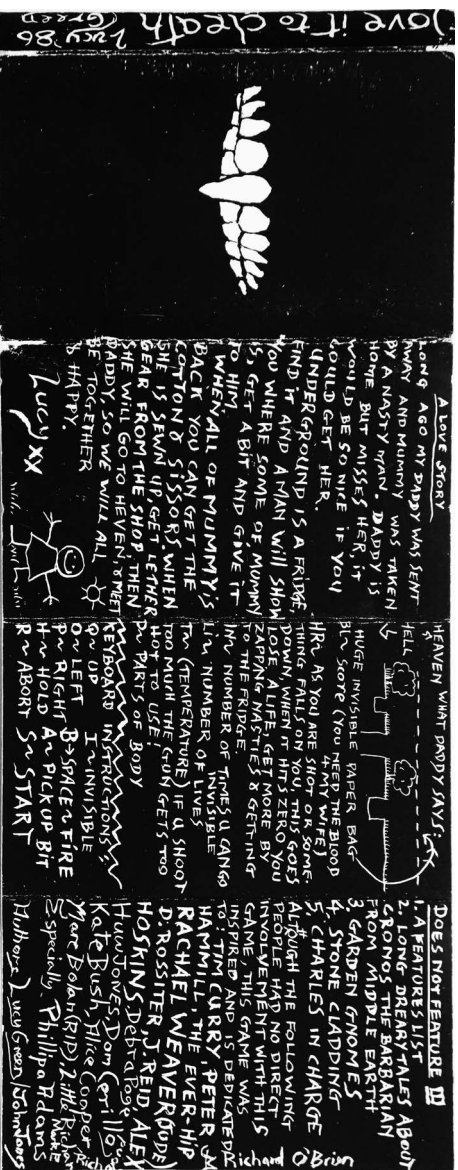 Love it to death
Lucy '86
(Greed)
A LOVE STORY
LONG AGO MY DADDY WAS SENT
AWAY AND MUMMY WAS TAKEN
BY A NASTY MAN. DADDY IS
HOME BUT MISSES HER, IT
WOULD BE SO NICE IF YOU
COULD GET HER.
UNDERGROUND IS A FRIDGE,
FIND IT AND A MAN WILL SHOW
YOU WHERE SOME OF MUMMY
IS, GET A BIT AND GIVE IT
TO HIM.
WHEN ALL OF MUMMY'S
BACK YOU CAN GET THE
COTTON & SISSORS. WHEN
SHE IS SEWN UP, GET LETHER
GEAR FROM THE SHOP THEN
SHE WILL GO TO HEVEN, & MEET
DADDY, SO WE WILL ALL
BE TOGETHER
& HAPPY.
Lucy xx
HEAVEN WHAT DADDY SAYS:
HELL
HUGE INVISIBLE PAPER BAG
BL~ SCORE (YOU NEED THE BLOOD
4 THE WIFE)
HR~ AS YOU ARE SHOT OR SOME-
THING FALLS ON YOU, THIS GOES
DOWN, WHEN IT HITS ZERO YOU
LOSE A LIFE, GET MORE BY
ZAPPING NASTIES & GETTING
TO THE FRIDGE
IN~ NUMBER OF TIMES U CAN GO
INVISIBLE
LI~ NUMBER OF LIVES
TM~ (TEMPERATURE) IF U SHOOT
TOO MUCH THE GUN GETS TOO
HOT TO USE!
P~ PARTS OF BODY
KEYBOARD INSTRUCTIONS:
Q~ UP I~ INVISIBLE
O~ LEFT B→SPACE~ FIRE
P~ RIGHT A~ PICK UP BIT
H~ HOLD S~ START
R~ ABORT
DOES NOT FEATURE
1. A FEATURES LIST
2. LONG DREARY TALES ABOUT
CRONOS THE BARBARIAN
FROM MIDDLE EARTH
3. GARDEN GNOMES
4. STONE CLADDING
5. CHARLES IN CHARGE
ALTHOUGH THE FOLLOWING
PEOPLE HAD NO DIRECT
INVOLVEMENT WITH THIS
GAME, THIS GAME WAS
INSPIRED AND IS DEDICATED
TO: TIM CURRY PETER
HAMMILL, THE EVER-HIP
RACHAEL WEAVER
D. ROSSITER J. REID ALEX
HOSKINS, Debra Page,
Huw Jones, Dom
Kate Bush, Alice Cooper
Marc Bolan (RIP) Little Richard
Especially Phillipa Adams
& Richard O'Brien
Authors: Lucy Green/John Jones